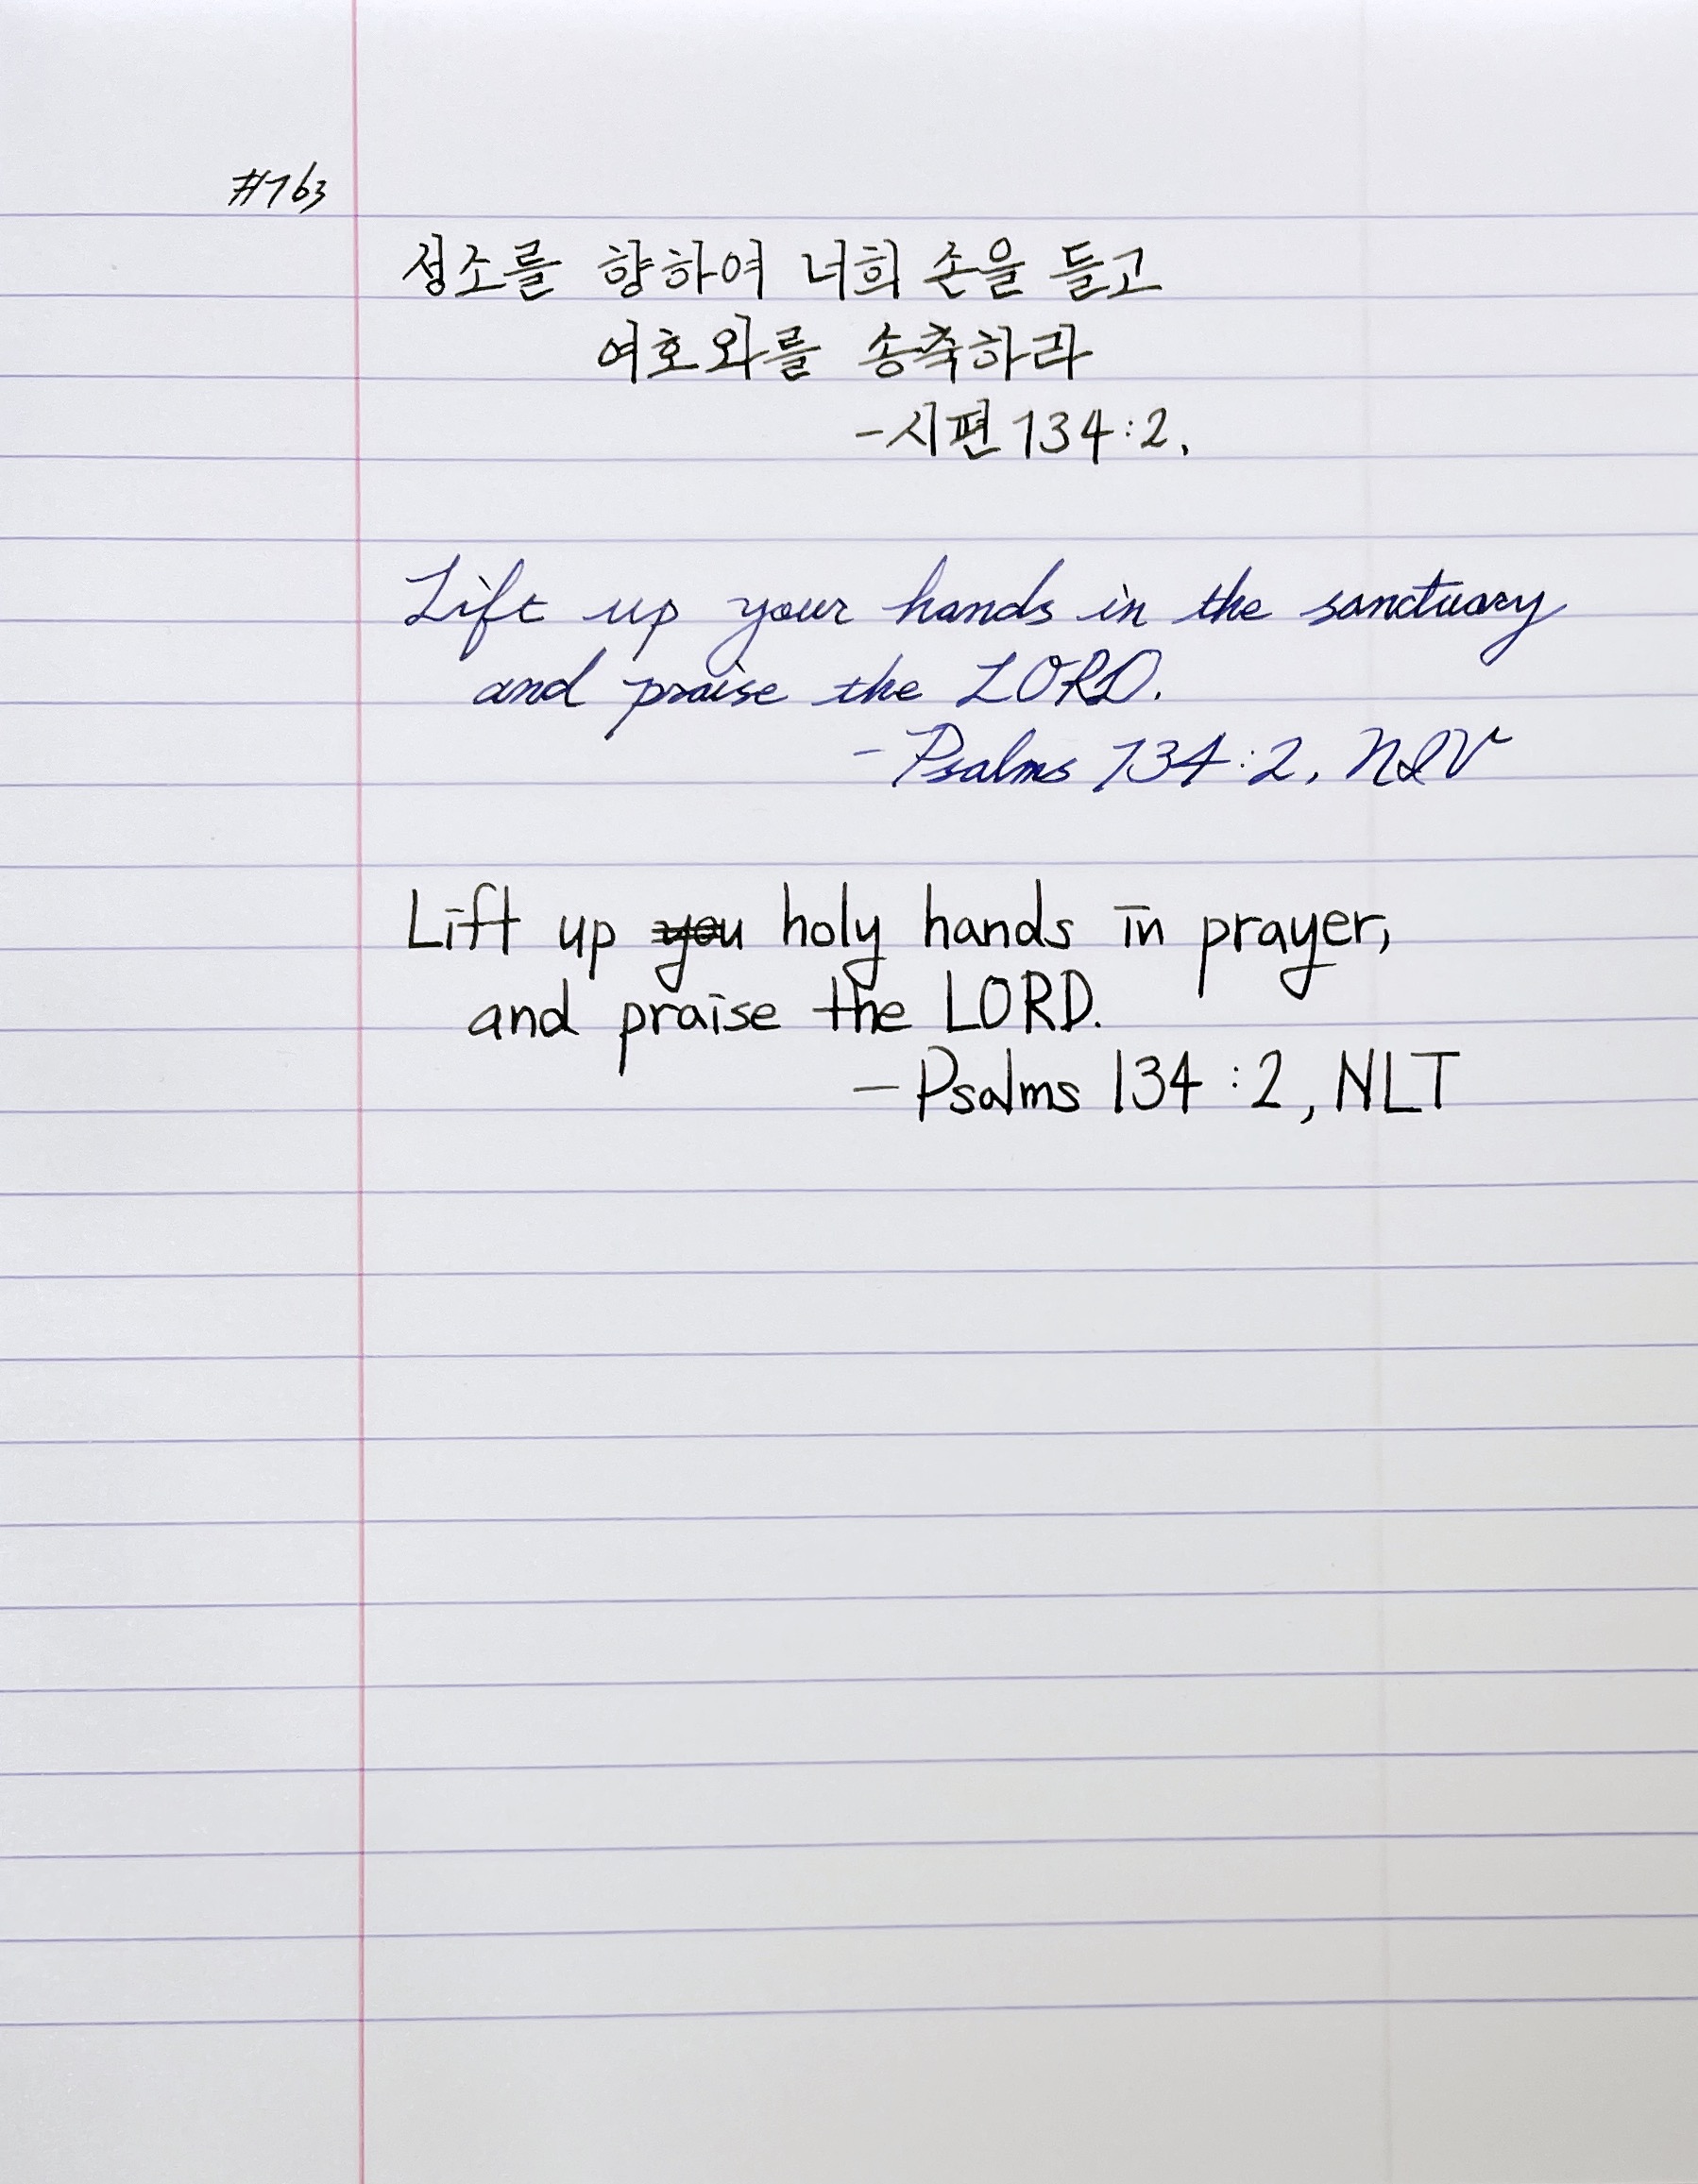 #763
성소를 향하여 너희 손을 들고
여호와를 송축하라
-시편 134:2.
Lift up your hands in the sanctuary
and praise the LORD.
- Psalms 134:2, NIV
Lift up you holy hands in prayer,
and praise the LORD.
- Psalms 134:2, NLT